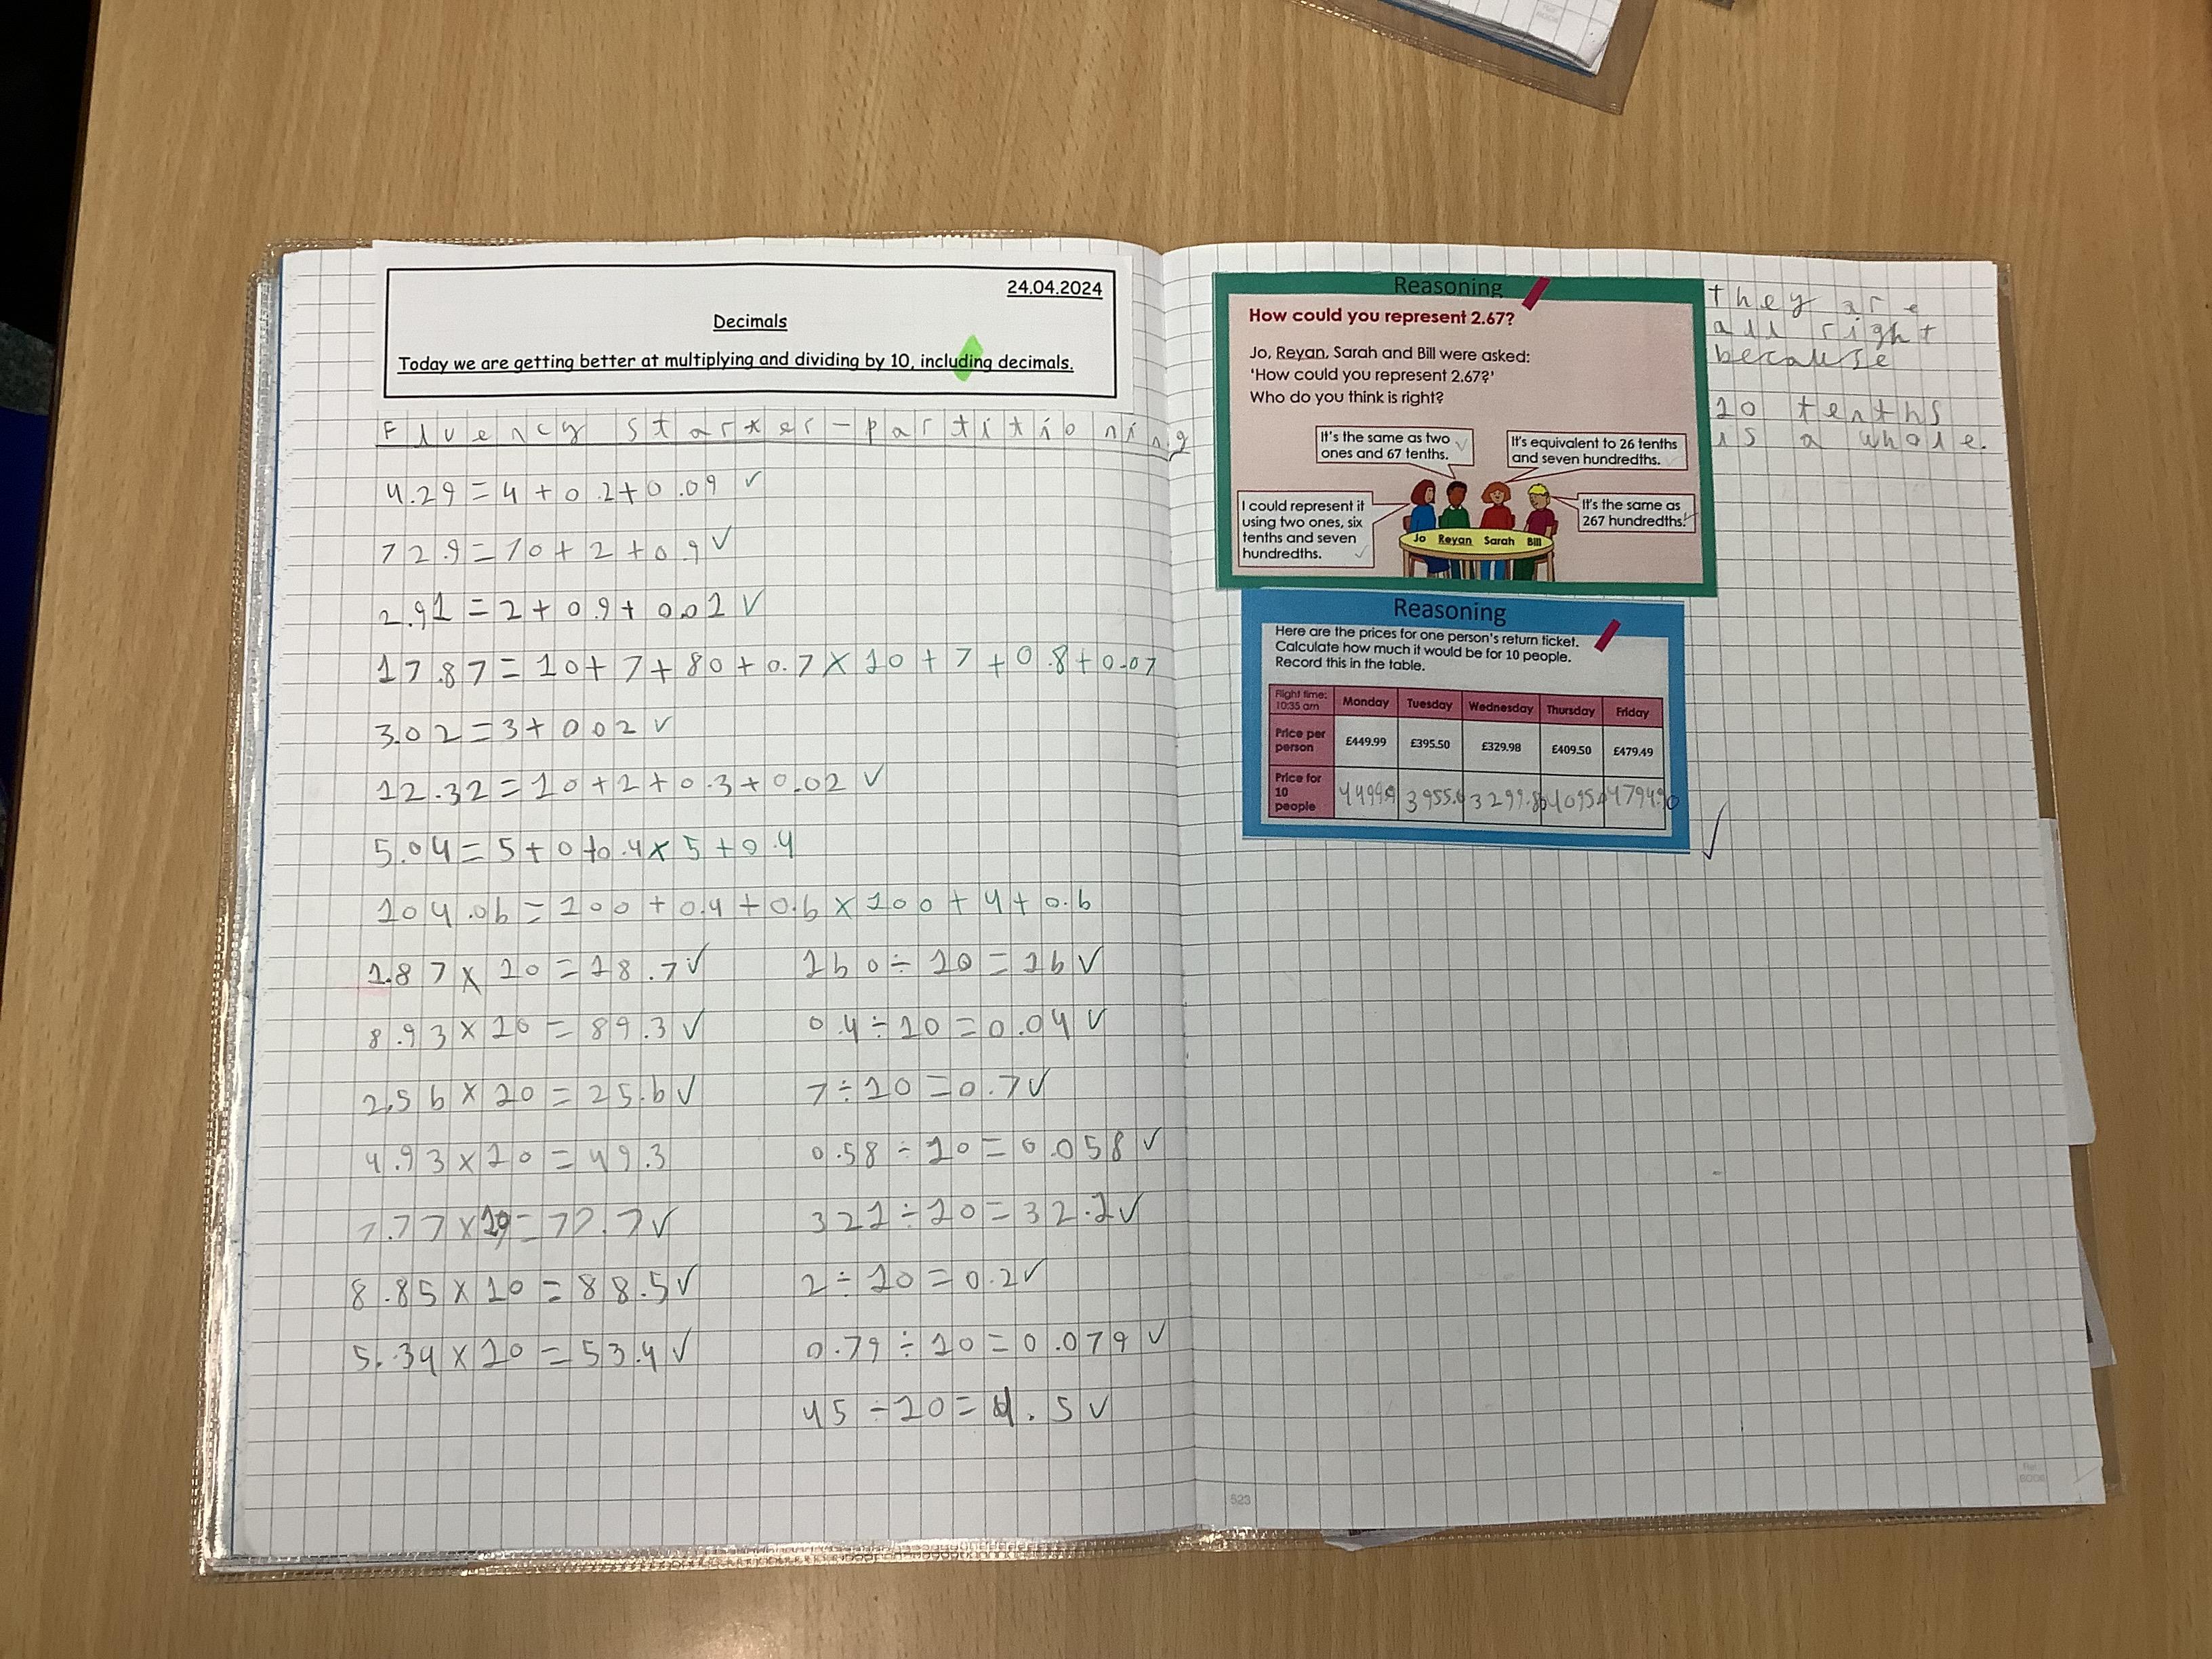 24.04.2024
Decimals
Today we are getting better at multiplying and dividing by 10, including decimals.
Fluency starter - partitioning
4.29 = 4 + 0.2 + 0.09 ✓
72.9 = 70 + 2 + 0.9 ✓
2.91 = 2 + 0.9 + 0.01 ✓
17.87 = 10 + 7 + 80 + 0.7 × 10 + 7 + 0.8 + 0.07
3.02 = 3 + 0.02 ✓
12.32 = 10 + 2 + 0.3 + 0.02 ✓
5.04 = 5 + 0 + 0.4 × 5 + 0.4
104.06 = 100 + 0.4 + 0.6 × 100 + 4 + 0.6
1.87 × 10 = 18.7 ✓
8.93 × 10 = 89.3 ✓
2.56 × 10 = 25.6 ✓
4.93 × 10 = 49.3
7.77 × 10 = 77.7 ✓
8.85 × 10 = 88.5 ✓
5.34 × 10 = 53.4 ✓
160 ÷ 10 = 16 ✓
0.4 ÷ 10 = 0.04 ✓
7 ÷ 10 = 0.7 ✓
0.58 ÷ 10 = 0.058 ✓
321 ÷ 10 = 32.1 ✓
2 ÷ 10 = 0.2 ✓
0.79 ÷ 10 = 0.079 ✓
45 ÷ 10 = 4.5 ✓
Reasoning
How could you represent 2.67?
Jo, Reyan, Sarah and Bill were asked:
'How could you represent 2.67?'
Who do you think is right?
It's the same as two
ones and 67 tenths.
It's equivalent to 26 tenths
and seven hundredths.
I could represent it
using two ones, six
tenths and seven
hundredths.
It's the same as
267 hundredths.
Jo Reyan Sarah Bill
they are
all right
because
10 tenths
is a whole.
Reasoning
Here are the prices for one person's return ticket.
Calculate how much it would be for 10 people.
Record this in the table.
Flight time:
10:35 am
Monday Tuesday Wednesday Thursday Friday
Price per
person
£449.99 £395.50 £329.98 £409.50 £479.49
Price for
10
people
3299.80 4794.90
523